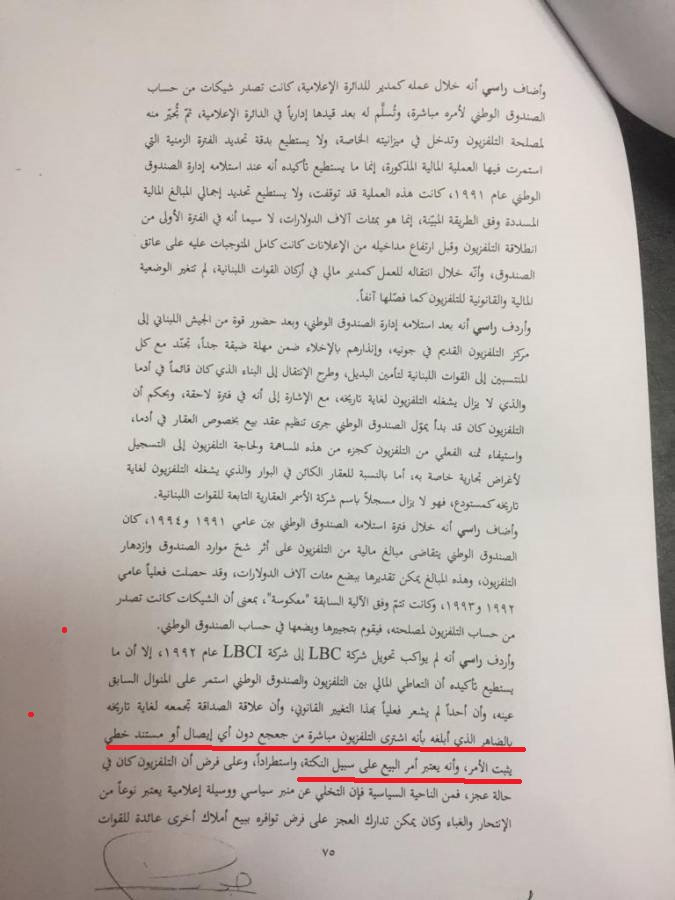 وأضاف راسي أنه خلال عمله كمدير للدائرة الإعلامية، كانت تصدر شيكات من حساب
الصندوق الوطني لأمره مباشرة، وتُسلَّم له بعد قيدها إدارياً في الدائرة الإعلامية، ثمّ تُجيّر منه
لمصلحة التلفزيون وتدخل في ميزانيته الخاصة، ولا يستطيع بدقة تحديد الفترة الزمنية التي
استمرت فيها العملية المالية المذكورة، إنما ما يستطيع تأكيده أنه عند استلامه إدارة الصندوق
الوطني عام ١٩٩١، كانت هذه العملية قد توقفت، ولا يستطيع تحديد إجمالي المبالغ المالية
المسددة وفق الطريقة المبيّنة، إنما هو بمئات آلاف الدولارات، لا سيما أنه في الفترة الأولى من
انطلاقة التلفزيون وقبل ارتفاع مداخيله من الإعلانات كانت كامل المتوجبات عليه على عاتق
الصندوق، وأنّه خلال انتقاله للعمل كمدير مالي في أركان القوات اللبنانية، لم تتغير الوضعية
المالية والقانونية للتلفزيون كما فصّلها آنفاً.
وأردف راسي أنه بعد استلامه إدارة الصندوق الوطني، وبعد حضور قوة من الجيش اللبناني إلى
مركز التلفزيون القديم في جونيه، وإنذارهم بالإخلاء ضمن مهلة ضيقة جداً، تجنّد مع كل
المنتسبين إلى القوات اللبنانية لتأمين البديل، وطرح الإنتقال إلى البناء الذي كان قائماً في أدما
والذي لا يزال يشغله التلفزيون لغاية تاريخه، مع الإشارة إلى أنه في فترة لاحقة، وبحكم أن
التلفزيون كان قد بدأ يموّل الصندوق الوطني جرى تنظيم عقد بيع بخصوص العقار في أدما،
واستيفاء ثمنه الفعلي من التلفزيون كجزء من هذه المساهمة ولحاجة التلفزيون إلى التسجيل
لأغراض تجارية خاصة به، أما بالنسبة للعقار الكائن في البوار والذي يشغله التلفزيون لغاية
تاريخه كمستودع، فهو لا يزال مسجلاً باسم شركة الأسمر العقارية التابعة للقوات اللبنانية.
وأضاف راسي أنه خلال فترة استلامه الصندوق الوطني بين عامي ١٩٩١ و١٩٩٤، كان
الصندوق الوطني يتقاضى مبالغ مالية من التلفزيون على أثر شحّ موارد الصندوق وازدهار
التلفزيون، وهذه المبالغ يمكن تقديرها ببضع مئات آلاف الدولارات، وقد حصلت فعلياً عامي
١٩٩٢ و١٩٩٣، وكانت تتمّ وفق الآلية السابقة "معكوسة"، بمعنى أن الشيكات كانت تصدر
من حساب التلفزيون لمصلحته، فيقوم بتجييرها ويضعها في حساب الصندوق الوطني.
وأردف راسي أنه لم يواكب تحويل شركة LBC إلى شركة LBCI عام ١٩٩٢، إلا أن ما
يستطيع تأكيده أن التعاطي المالي بين التلفزيون والصندوق الوطني استمر على المنوال السابق
عينه، وأن أحداً لم يشعر فعلياً بهذا التغيير القانوني، وأن علاقة الصداقة تجمعه لغاية تاريخه
بالضاهر الذي أبلغه بأنه اشترى التلفزيون مباشرة من جعجع دون أي إيصال أو مستند خطي
يثبت الأمر، وأنه يعتبر أمر البيع على سبيل النكتة، واستطراداً، وعلى فرض أن التلفزيون كان في
حالة عجز، فمن الناحية السياسية فإن التخلي عن منبر سياسي ووسيلة إعلامية يعتبر نوعاً من
الإنتحار والغباء وكان يمكن تدارك العجز على فرض توافره ببيع أملاك أخرى عائدة للقوات
٧٥